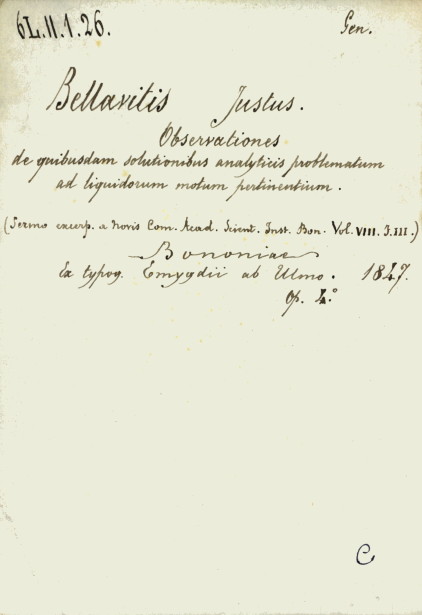 6L.II.1.26. Gen.
Bellavitis Justus.
Observationes
de quibusdam solutionibus analyticis problematum
ad liquidorum motum pertinentium.
(Sermo excerp. a Novis Com. Acad. Scient. Inst. Bon. Vol. VIII. F. III.)
Bononiae
Ex typog. Emygdii ab Ulmo. 1847.
Op. 4.°
C